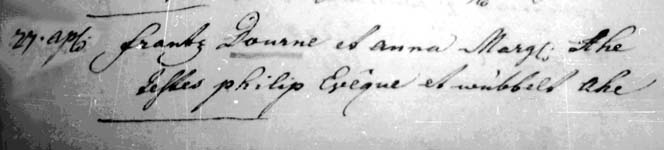 27. aplis frantz Dourne et anna Marg: Ahe
testes philip Evêque et wübbelt Ahe